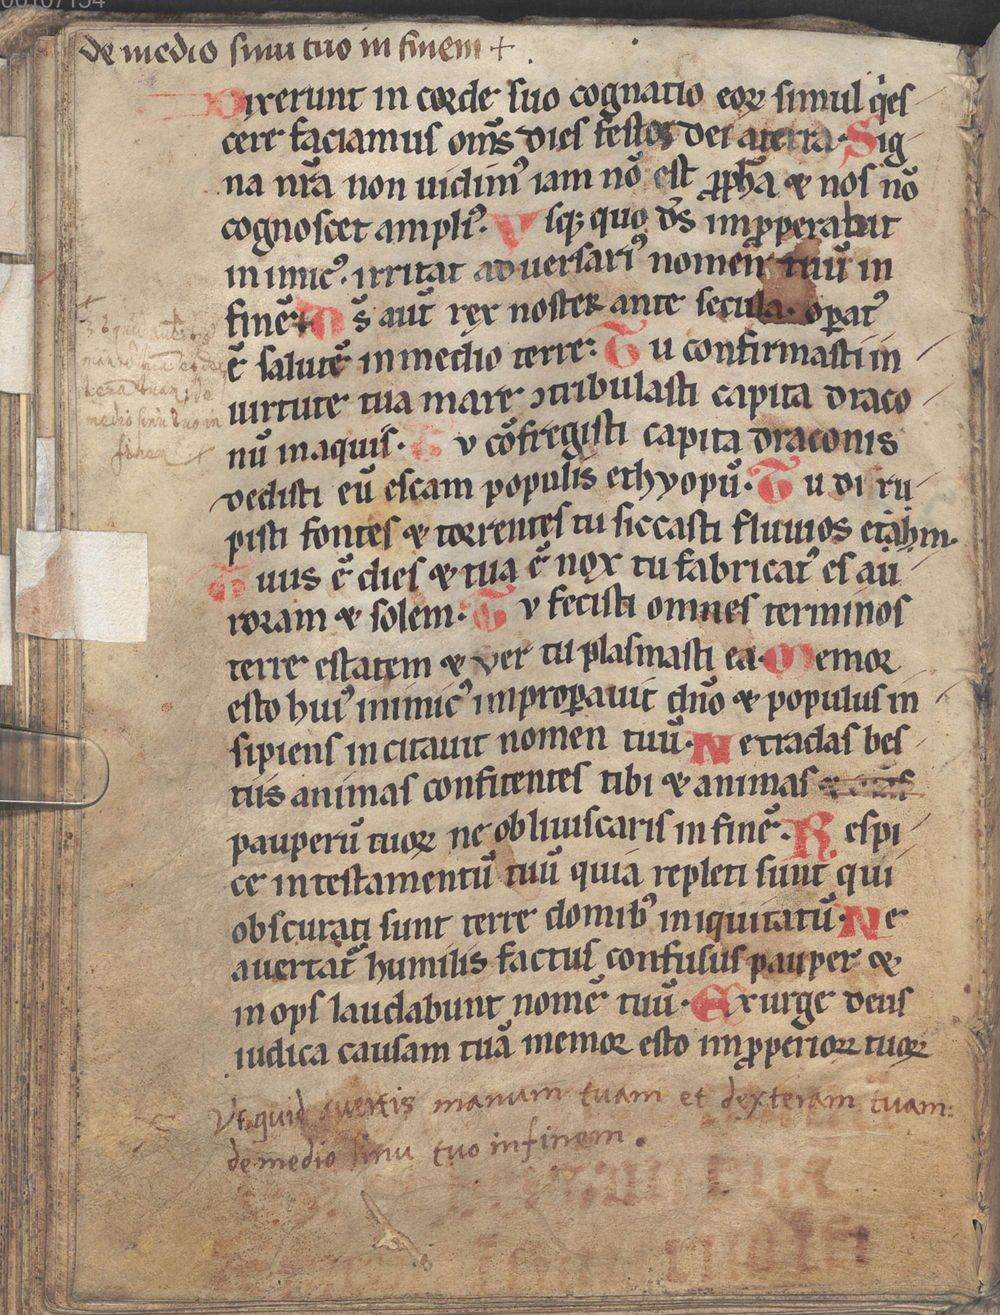 de medio sinu tuo in finem +
Dixerunt in corde suo cognatio eoꝝ simul q̇es
cere faciamus om̄s dies festos dei aterra. Sig
na nr̄a non uidim᷒ iam nō est ꝓph̄a ⁊ nos nō
cognoscet ampli᷒. Vsqꝫ quo ds̄ imꝓperabit
inimic᷒. irritat aduersari᷒ nomen tuū in
finē + Ds̄ aut̄ rex noster ante secula. oꝑat᷒
ē salutē inmedio terre. Tu confirmasti in
uirtute tua mare ↄtribulasti capita draco
nū inaquis. Tu cōfregisti capita draconis
dedisti eū escam populis ethyopū. Tu diru
pisti fontes ⁊ torrentes tu siccasti fluuios etahm.
Tuus ē dies ⁊ tua ē nox tu fabricat᷒ es au
roram ⁊ solem. Tu fecisti omnes terminos
terre estatem ⁊ ver tu plasmasti ea. Memor
esto hui᷒ inimic᷒ improꝑauit dn̄o ⁊ populus in
sipiens incitauit nomen tuū. Ne tradas bes
tiis animas confitentes tibi ⁊ animas
pauperū tuoꝝ ne obliuiscaris infinē. Respi
ce intestamentū tuū quia repleti sunt qui
obscurati sunt terre domib᷒ iniquitatū. Ne
auertat᷒ humilis factus confusus pauper ⁊
inops laudabunt nomē tuū. Exurge deus
iudica causam tuā memor esto imꝓperioꝝ tuoꝝ
Vt quid avertis manum tuam et dexteram tuam:
de medio sinu tuo in finem.